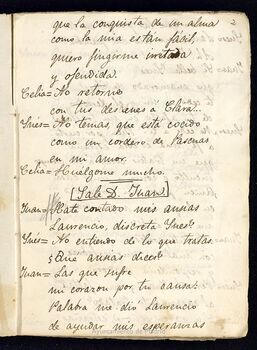 2
que la conquista de un alma
como la mia estan facil,
quiero fingirme irritada
y ofendida.
Celia = No retorno
con tus desdenes á Clara.
Ynes = No temas, que está cocido
como un cordero de Pascuas
en mi amor.
Celia = Huelgome mucho.
[Sale D. Juan]
Juan = contado mis ansias
Laurencio, discreta Ynes?
Ynés = No entiendo de lo que tratas
¿Que ansias decis?
Juan = Las que sufre
mi corazon por tu causa.
Palabra me dió Laurencio
de ayudar mis esperanzas
Ayuntamiento de Madrid